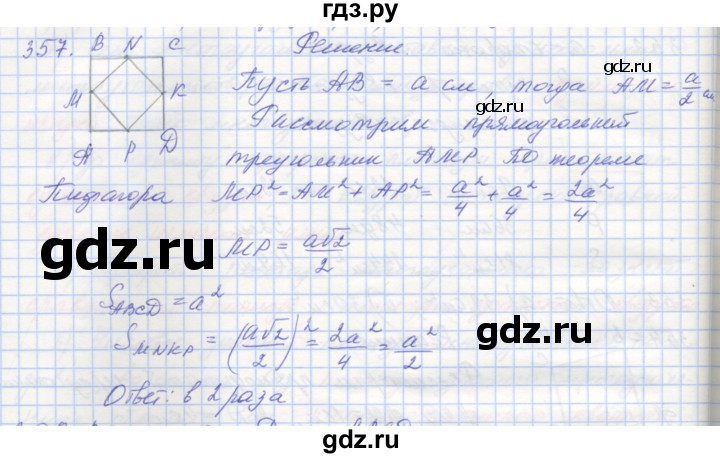 гдз.ру
357. B N C Решение.
gdz.ru
M K Пусть AB = a см, тогда AM = a/2 см
gdz.ru
Рассмотрим прямоугольный
A P D треугольник AMP. По теореме
Пифагора MP² = AM² + AP² = a²/4 + a²/4 = 2a²/4
gdz.ru
MP = a√2/2
gdz.ru
S_ABCD = a²
gdz.ru
S_MNKP = (a√2/2)² = 2a²/4 = a²/2
gdz.ru
Ответ: в 2 раза
gdz.ru